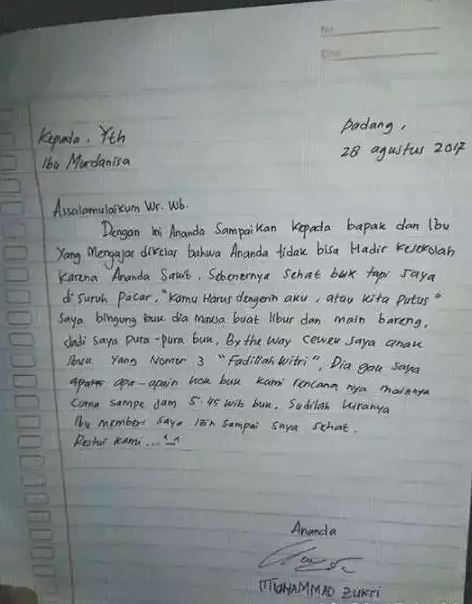 No.
Date
Kepada. Yth
Padang,
Ibu Murdanisa
28 agustus 2017
Assalamulaikum Wr. Wb.
Dengan Ini Ananda Sampaikan Kepada bapak dan Ibu
Yang Mengajar dikelas bahwa Ananda tidak bisa Hadir Kesekolah
Karena Ananda Sakit, Sebenernya sehat buk tapi saya
di suruh pacar, "Kamu Harus dengerin aku, atau kita Putus"
Saya bingung buu dia maksa buat libur dan main bareng,
Jadi Saya pura-pura buu. By the way Cewek Saya anak
Ibuu Yang Nomor 3 "Fadillah Witri", Dia gak saya
apa-apain kok buu kami rencana nya mainnya
Cuma sampe Jam 5.45 Wib buk, Sudilah kiranya
Ibu memberi Saya izin sampai saya sehat.
Restui Kami... ^_^
Ananda
MUHAMMAD Zukri